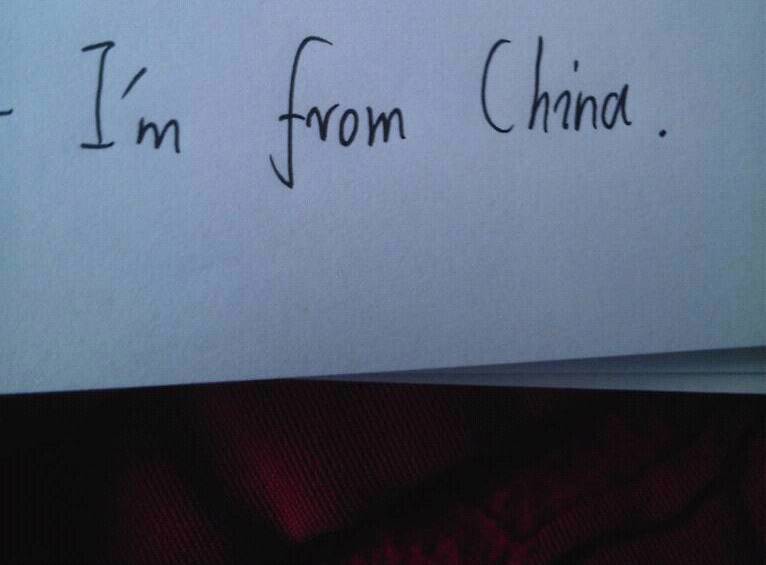 - I'm from China.